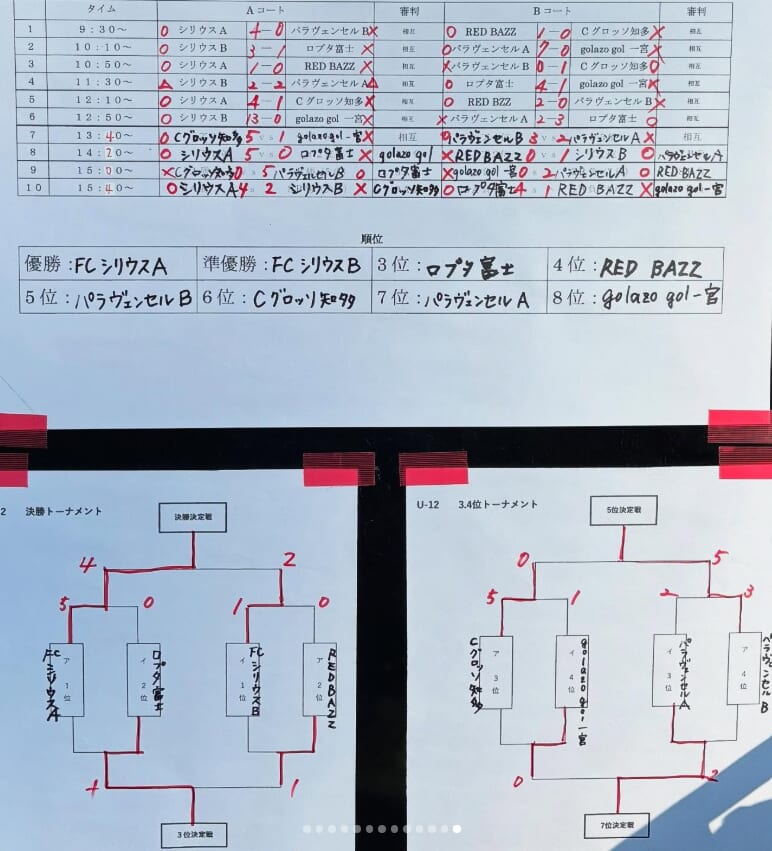 タイム Aコート 審判 Bコート 審判
1 9:30～ 〇 シリウスA 4－0 パラヴェンセルB × 相互 〇 RED BAZZ 1－0 Cグロッソ知多 × 相互
2 10:10～ 〇 シリウスB 3－1 ロプタ富士 × 相互 〇 パラヴェンセルA 7－0 golazo gol 一宮 × 相互
3 10:50～ 〇 シリウスA 1－0 RED BAZZ × 相互 × パラヴェンセルB 0－1 Cグロッソ知多 〇 相互
4 11:30～ △ シリウスB 2－2 パラヴェンセルA △ 相互 〇 ロプタ富士 4－1 golazo gol 一宮 × 相互
5 12:10～ 〇 シリウスA 4－1 Cグロッソ知多 × 相互 〇 RED BZZ 2－0 パラヴェンセルB × 相互
6 12:50～ 〇 シリウスB 13－0 golazo gol 一宮 × 相互 × パラヴェンセルA 2－3 ロプタ富士 〇 相互
7 13:40～ 〇 Cグロッソ知多 5 vs 1 golazo gol 一宮 × 相互 〇 パラヴェンセルB 3 vs 2 パラヴェンセルA × 相互
8 14:20～ 〇 シリウスA 5 vs 0 ロプタ富士 × golazo gol × RED BAZZ 0 vs 1 シリウスB 〇 パラヴェンセルA
9 15:00～ × Cグロッソ知多 0 5 パラヴェンセルB 〇 ロプタ富士 × golazo gol 一宮 0 2 パラヴェンセルA 〇 RED BAZZ
10 15:40～ 〇 シリウスA 4 2 シリウスB × Cグロッソ知多 〇 ロプタ富士 4 1 RED BAZZ × golazo gol 一宮
順位
優勝:FCシリウスA 準優勝:FCシリウスB 3位:ロプタ富士 4位:RED BAZZ
5位:パラヴェンセルB 6位:Cグロッソ知多 7位:パラヴェンセルA 8位:golazo gol 一宮
2 決勝トーナメント
決勝決定戦
4 2
5 0 1 0
ア1位 FCシリウスA
イ2位 ロプタ富士
イ1位 FCシリウスB
ア2位 REDBAZZ
4 1
3位決定戦
U-12 3.4位トーナメント
5位決定戦
0 5
5 1 2 3
ア3位 Cグロッソ知多
イ4位 golazo gol 一宮
イ3位 パラヴェンセルA
ア4位 パラヴェンセルB
0 2
7位決定戦